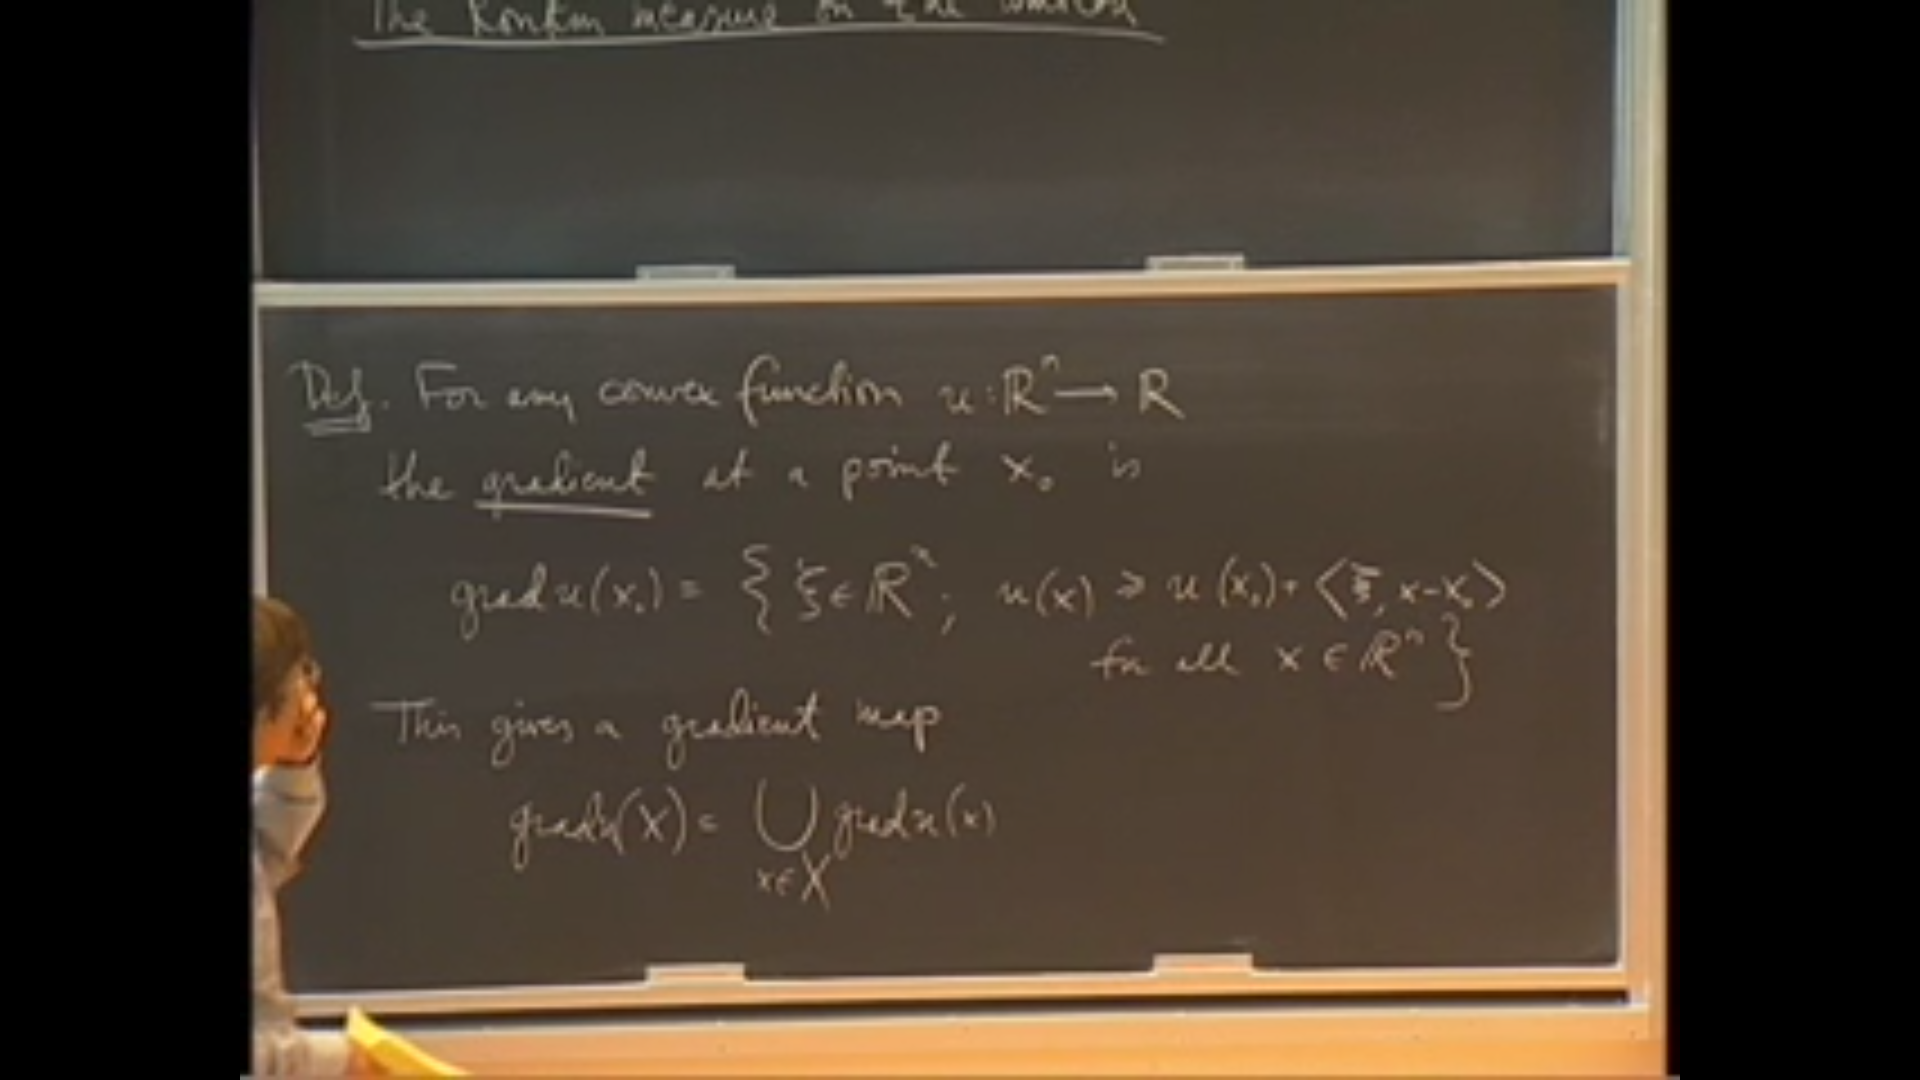 The Ronkin measure on the
Def. For any convex function u: ℝⁿ → ℝ
the gradient at a point x₀ is
grad u(x₀) = { ξ ∈ ℝⁿ ; u(x) ≥ u(x₀) + ⟨ξ, x-x₀⟩
for all x ∈ ℝⁿ }
This gives a gradient map
grad u(X) = ⋃ grad u(x)
x∈X